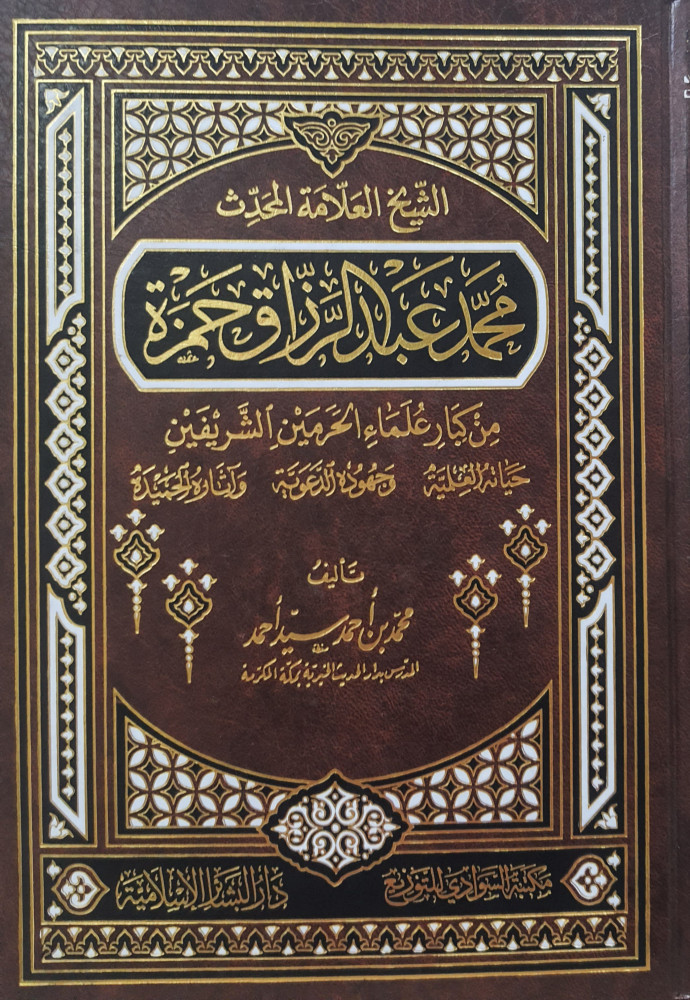 الشيخ العلامة المحدث
محمد عبد الرزاق حمزة
من كبار علماء الحرمين الشريفين
حياته العلمية وجهوده الدعوية وآثاره الحميدة
تأليف
محمد بن أحمد سيد أحمد
المدرس بدار الحديث الخيرية بمكة المكرمة
مكتبة السوادي للتوزيع
دار البشائر الإسلامية